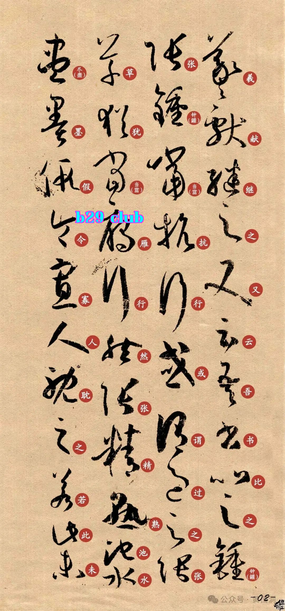 羲献继之又云吾书比之钟
张钟当抗行或谓过之张
草犹当雁行然张精熟池水
尽墨假令寡人耽之若此未
b29 club
公众号
-02-